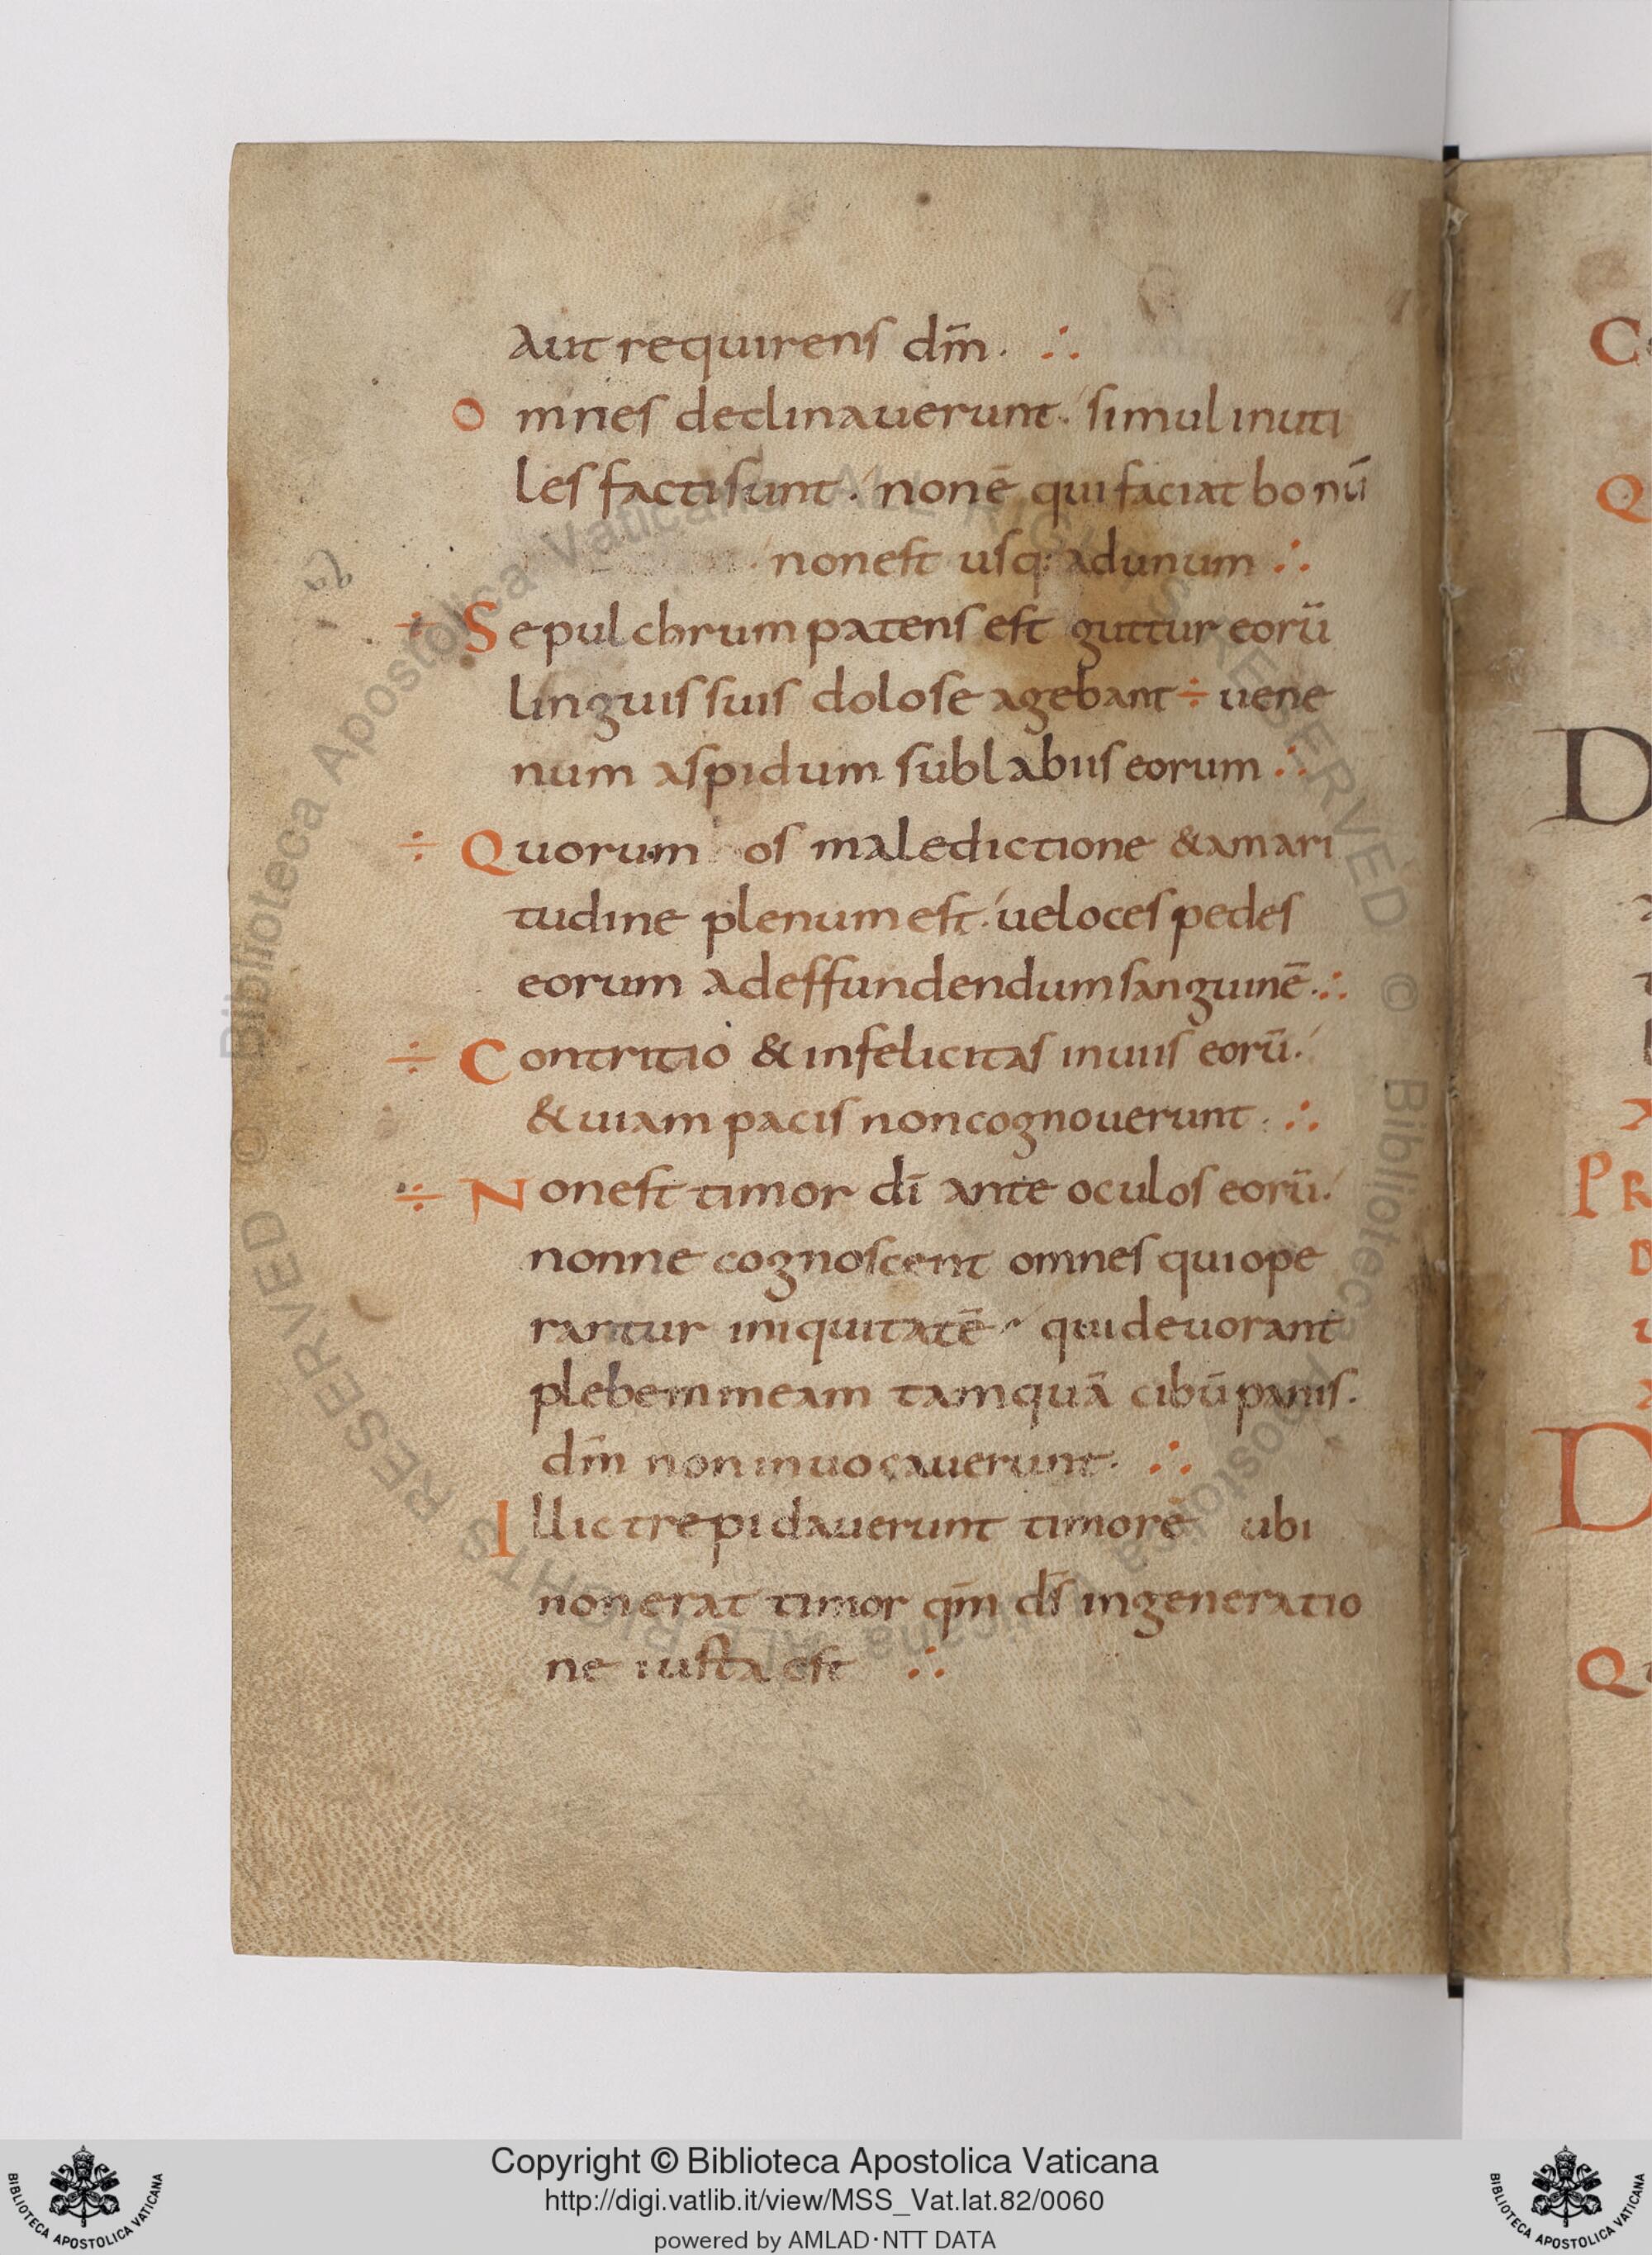 aut requirens dm̄. ∴
Omnes declinauerunt. simul inuti
les facti sunt. non ē qui faciat bonū
non est usq: ad unum ∴
÷ Sepulchrum patens est guttur eorū
linguis suis dolose agebant ÷ uene
num aspidum sub labiis eorum ∴
÷ Quorum os maledictione & amari
tudine plenum est. ueloces pedes
eorum ad effundendum sanguinē. ∴
÷ Contritio & infelicitas in uiis eorū.
& uiam pacis non cognouerunt. ∴
÷ Non est timor dī ante oculos eorū.
nonne cognoscent omnes qui ope
rantur iniquitatē qui deuorant
plebem meam tamquā cibū panis.
dm̄ non inuocauerunt. ∴
Illic trepidauerunt timore ubi
non erat timor qm̄ ds̄ in generatio
ne iusta est ∴
C
Q
D
PR
D
Q
Copyright © Biblioteca Apostolica Vaticana
http://digi.vatlib.it/view/MSS_Vat.lat.82/0060
powered by AMLAD·NTT DATA
BIBLIOTECA APOSTOLICA VATICANA
BIBLIOTECA APOSTOLICA VATICANA